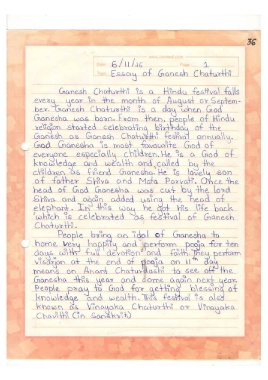 36
Date 6/11/26 Page 1
Topic Essay of Ganesh Chaturthi
Ganesh Chaturthi is a Hindu festival falls
every year in the month of August or Septem-
ber. Ganesh Chaturthi is a day when God
Ganesha was born. from then, people of Hindu
religion started celebrating birthday of the
Ganesh as Ganesh Chaturthi festival annually.
God Ganesha is most favourite God of
everyone especially children. He is a God of
knowledge and wealth and called by the
children as friend Ganesha. He is lovely son
of father Shiva and Mata Parvati. Once the
head of God Ganesha was cut by the lord
Shiva and again added using the head of
elephant. In this way, he got his life back
which is celebrated as festival of Ganesh
Chaturthi.
People bring an idol of Ganesha to
home very happily and perform pooja for ten
days with full devotion and faith. They perform
visarjan at the end of pooja on 11th day
means on Anant Chaturdashi to see off the
Ganesha this year and come again next year.
People pray to God for getting blessing of
knowledge and wealth. This festival is also
known as Vinayaka Chaturthi or Vinayaka
Chavithi (in Sanskrit)